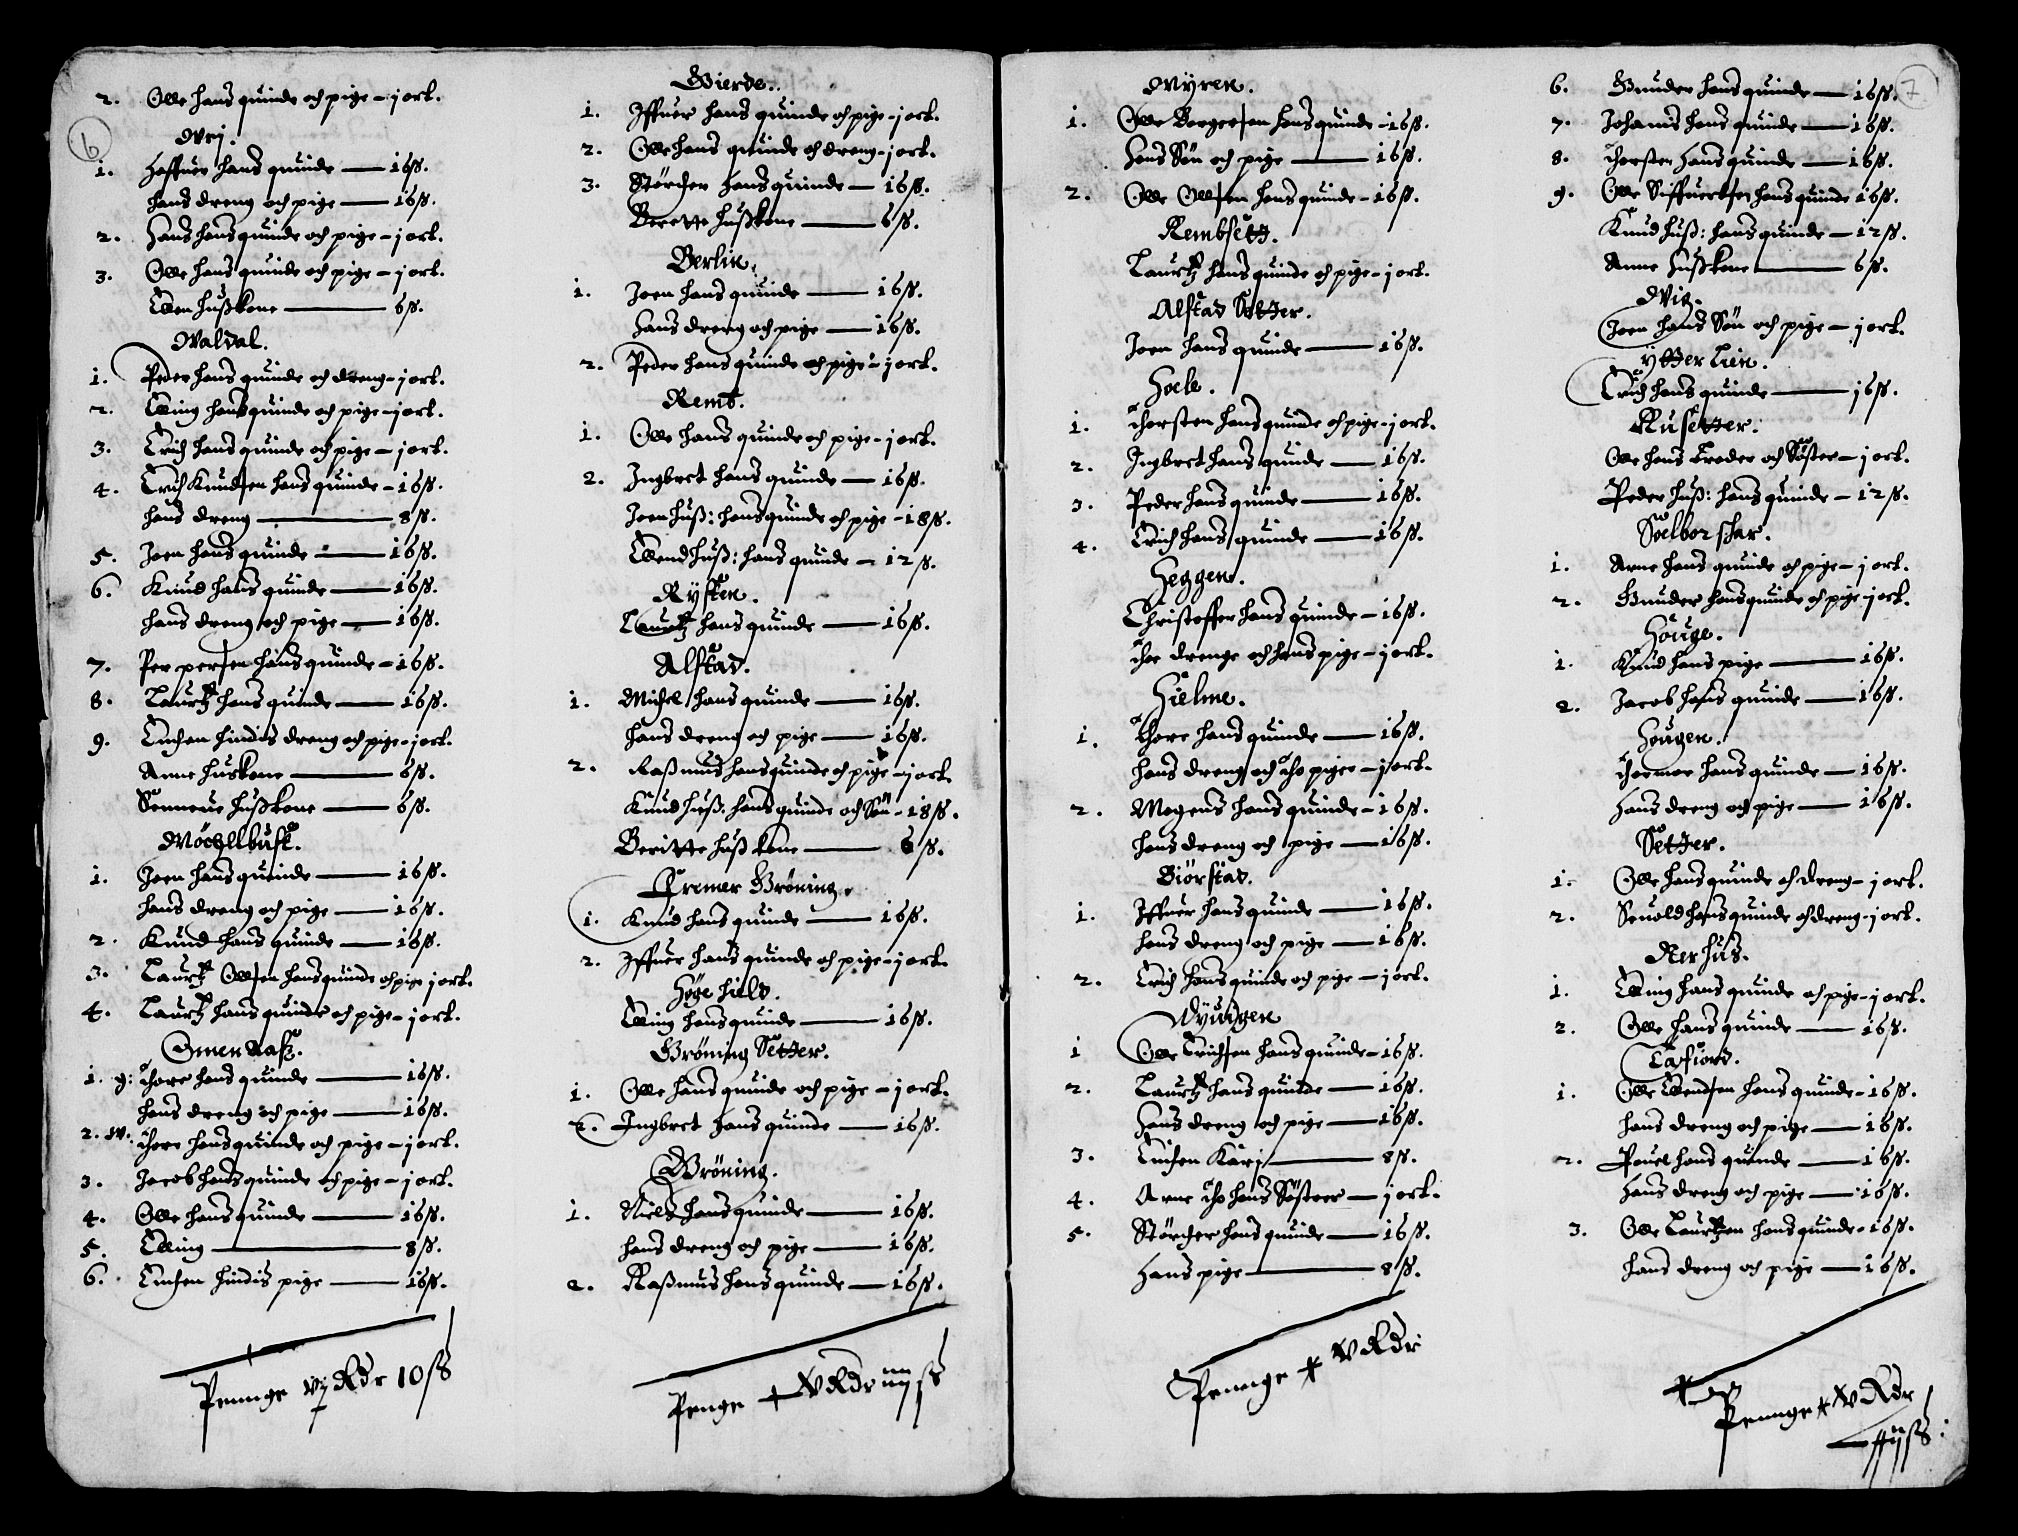 6
2. Olle hans quinde och pige – j ort.
Wrj.
1. Haffuer hans quinde — 16 ß.
hans dreng och pige — 16 ß.
2. Hans hans quinde och pige – j ort.
3. Olle hans quinde och pige – j ort.
Ellen hußkone — 6 ß.
Waldal.
1. Peder hans quinde och dreng – j ort.
2. Elling hans quinde och pige – j ort.
3. Erich hans quinde och pige – j ort.
4. Erich Knudsen hans quinde – 16 ß.
hans dreng — 8 ß.
5. Joen hans quinde — 16 ß.
6. Knud hans quinde — 16 ß.
hans dreng och pige — 16 ß.
7. Per persen hans quinde – 16 ß.
8. Laurtz hans quinde — 16 ß.
9. Enchen hindis dreng och pige – j ort.
Anne huskone — 6 ß.
Senneue hußkone — 6 ß.
Möchllbust.
1. Joen hans quinde — 16 ß.
hans dreng och pige — 16 ß.
2. Knud hans quinde — 16 ß.
3. Laurtz Ollsen hans quinde och pige j ort.
4. Laurtz hans quinde och pige – j ort.
Omen Nasz.
1. g: Thore hans quinde — 16 ß.
hans dreng och pige — 16 ß.
2. w: Thore hans quinde och pige – j ort.
3. Jacob hans quinde och pige – j ort.
4. Olle hans quinde — 16 ß.
5. Elling — 8 ß.
6. Enchen hindis pige — 16 ß.
Pennge vj Rdr 10 ß
Gierde.
1. Iffuer hans quinde och pige – j ort.
2. Olle hans quinde och dreng – j ort.
3. Störcher hans quinde — 16 ß.
Berette hußkone — 6 ß.
Berlin.
1. Joen hans quinde — 16 ß.
hans dreng och pige — 16 ß.
2. Peder hans quinde och pige – j ort.
Remb.
1. Olle hans quinde och pige – j ort.
2. Ingbret hans quinde — 16 ß.
Joen huß: hans quinde och pige – 18 ß.
Ellend huß: hans quinde – 12 ß.
Rysten.
Laurtz hans quinde — 16 ß.
Alstad.
1. Michel hans quinde — 16 ß.
hans dreng och pige — 16 ß.
2. Raßmus hans quinde och pige – j ort.
Knud huß: hans quinde och Sön – 18 ß.
Beritte huß kone — 6 ß.
Fremer Gröning.
1. Knud hans quinde — 16 ß.
2. Iffuer hans quinde och pige – j ort.
Høge hield.
Elling hans quinde — 16 ß.
Gröning Setter.
1. Olle hans quinde och pige – j ort.
2. Ingbret hans quinde — 16 ß.
Gröning.
1. Niels hans quinde — 16 ß.
hans dreng och pige — 16 ß.
2. Raßmus hans quinde — 16 ß.
Penge + v Rdr iiij ß
7
Myren.
1. Olle Borgersen hans quinde – 16 ß.
hans Sön och pige — 16 ß.
2. Olle Ollsen hans quinde – 16 ß.
Rembsett.
Laurtz hans quinde och pige – j ort.
Alstad Setter.
Joen hans quinde — 16 ß.
Hoele.
1. Thorsten hans quinde och pige – j ort.
2. Ingbret hans quinde — 16 ß.
3. Peder hans quinde — 16 ß.
4. Erich hans quinde — 16 ß.
Heggen.
Christoffer hans quinde – 16 ß.
Thoe drenge och hans pige – j ort.
Hielme.
1. Thore hans quinde — 16 ß.
hans dreng och tho piger – j ort.
2. Mogens hans quinde – 16 ß.
hans dreng och pige — 16 ß.
Biörstad.
1. Iffuer hans quinde — 16 ß.
hans dreng och pige — 16 ß.
2. Erich hans quinde och pige – j ort.
Dyvingen
1 Olle Erichsen hans quinde – 16 ß.
2. Laurtz hans quinde — 16 ß.
hans dreng och pige — 16 ß.
3. Enchen Karj — 8 ß.
4. Arne tho hans Söster — j ort.
5. Störcher hans quinde — 16 ß.
hans pige — 8 ß.
Pennge + v Rdr
6. Gunder hans quinde — 16 ß.
7. Johans hans quinde — 16 ß.
8. Thorsten hans quinde — 16 ß.
9. Olle Siffuertsen hans quinde 16 ß.
Knud huß: hans quinde – 12 ß.
Anne hußkone — 6 ß.
Wig.
Joen hans Sön och pige – j ort.
Ytter Lien.
Erich hans quinde — 16 ß.
Rusetter.
Olle hans broder och Söster – j ort.
Peder huß: hans quinde – 12 ß.
Selborskar.
1. Arne hans quinde och pige – j ort.
2. Gunder hans quinde och pige j ort.
Houge.
1. Knud hans pige — 16 ß.
2. Jacob hans quinde — 16 ß.
Hougen.
Thormor hans quinde — 16 ß.
hans dreng och pige — 16 ß.
Setter.
1. Olle hans quinde och dreng – j ort.
2. Seuold hans quinde och dreng – j ort.
Nerhus.
1. Elling hans quinde och pige – j ort.
2. Olle hans quinde — 16 ß.
Tafiord.
1. Olle Ellendsen hans quinde – 16 ß.
hans dreng och pige — 16 ß.
2. Pouel hans quinde — 16 ß.
hans dreng och pige — 16 ß.
3. Olle Laurtzen hans quinde – 16 ß.
hans dreng och pige — 16 ß.
Pennge + v Rdr